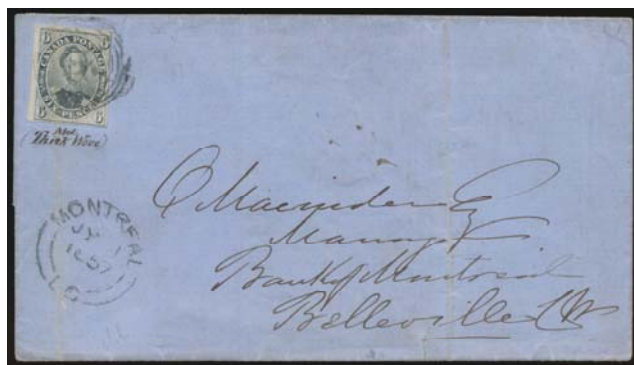 CANADA POSTAGE
SIX PENCE
Med.
Thick Wove
MONTREAL
1857
L.C.
Esq
Manager
Bank of Montreal
Belleville CW